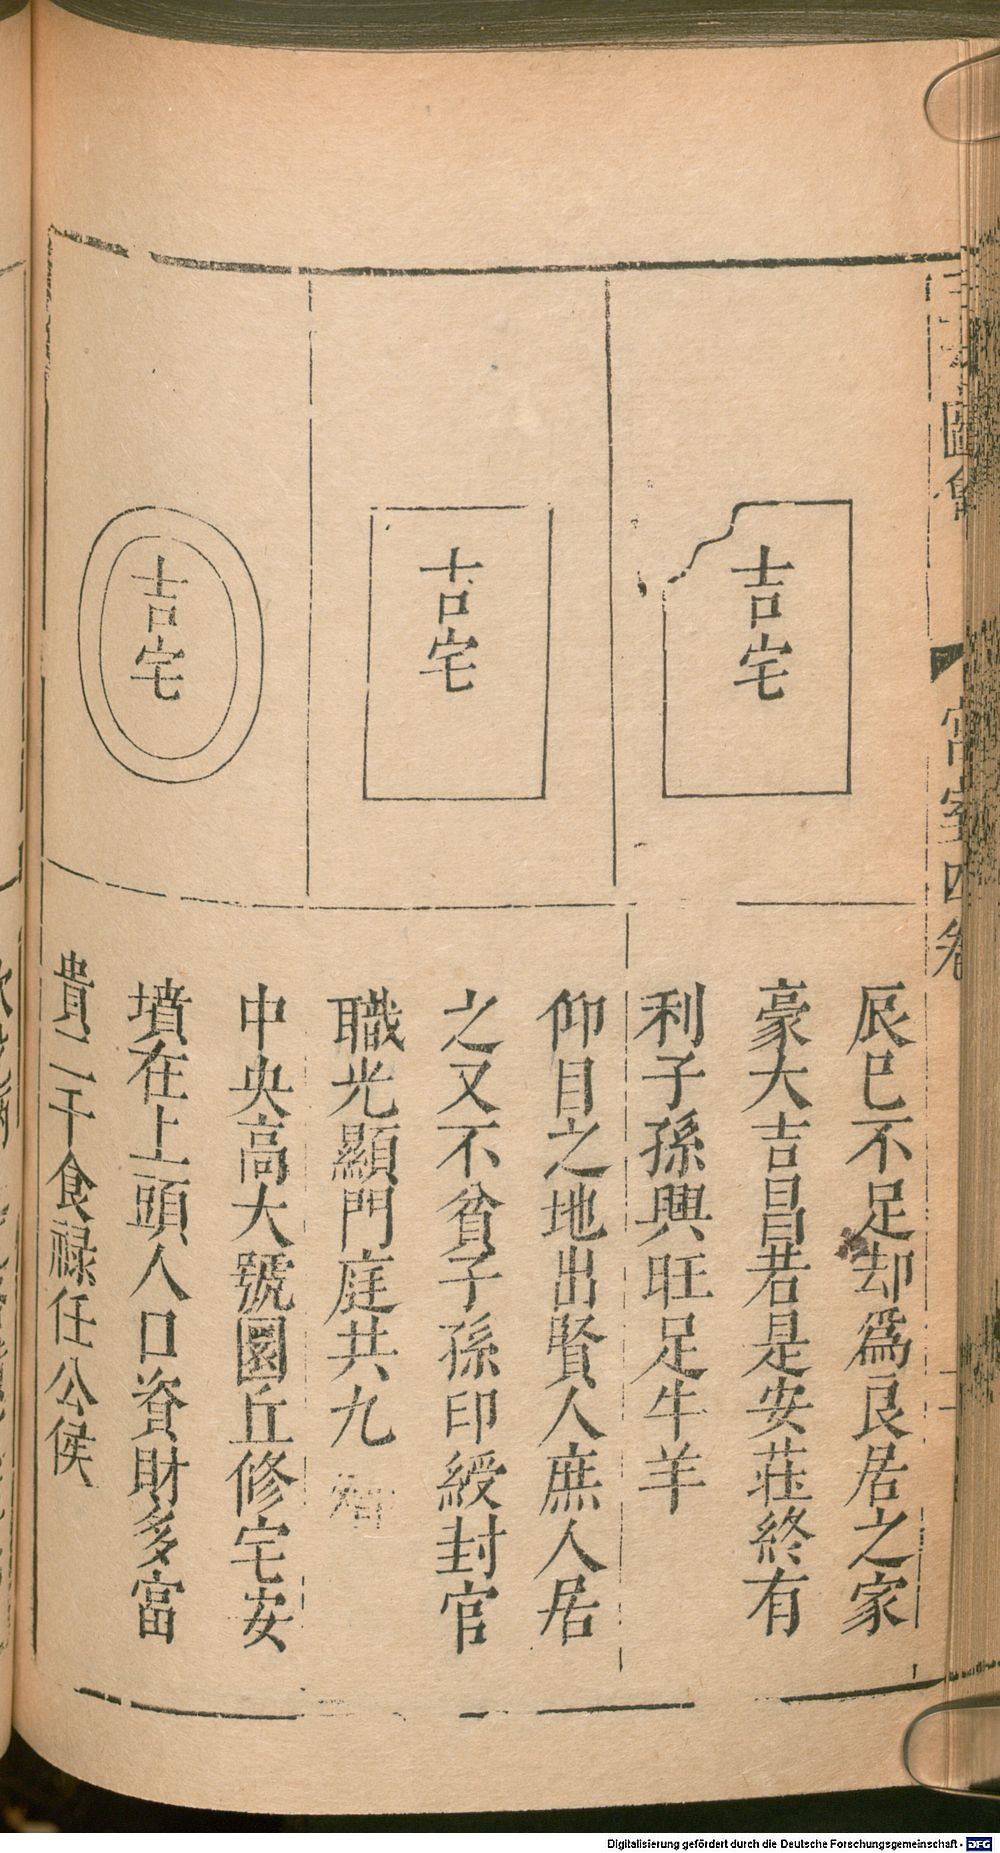 圖會
宮室四卷
吉宅
辰巳不足却爲良居之家
豪大吉昌若是安莊終有
利子孫興旺足牛羊
吉宅
仰目之地出賢人庶人居
之又不貧子孫印綬封官
職光顯門庭共九
吉宅
中央高大號圜丘修宅安
墳在上頭人口資財多富
貴二千食禄任公侯
Digitalisierung gefördert durch die Deutsche Forschungsgemeinschaft - DFG